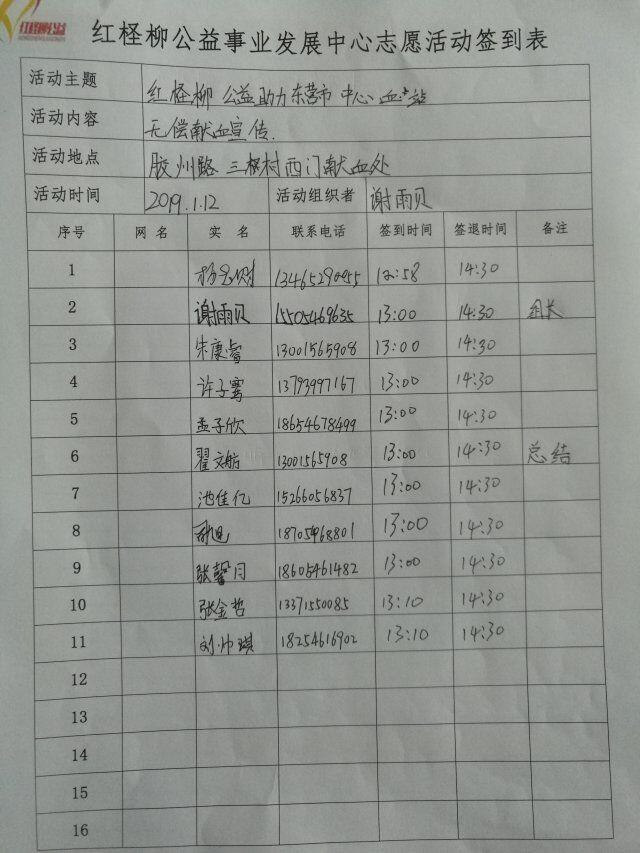 红柽柳公益
红柽柳公益事业发展中心志愿活动签到表
活动主题 红柽柳 公益助力东营市 中心血站
活动内容 无偿献血宣传.
活动地点 胶州路 三根村西门献血处
活动时间 2019.1.12 活动组织者 谢雨贝
序号 网 名 实 名 联系电话 签到时间 签退时间 备注
1 13465290955 12:58 14:30
2 谢雨贝 15505469635 13:00 14:30 组长
3 朱康睿 13001565908 13:00 14:30
4 许子骞 13793997167 13:00 14:30
5 孟子欣 18654678499 13:00 14:30
6 翟文舫 13001565908 13:00 14:30 总结
7 池佳亿 15266056837 13:00 14:30
8 18705468801 13:00 14:30
9 张馨月 18605461482 13:00 14:30
10 张金哲 13371550085 13:10 14:30
11 刘帅琪 18254616902 13:10 14:30
12
13
14
15
16